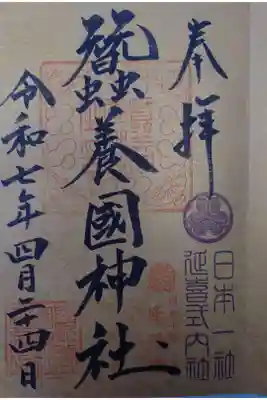 奉拝
日本一社
延喜式内社
蠶養國神社
令和七年四月二十四日